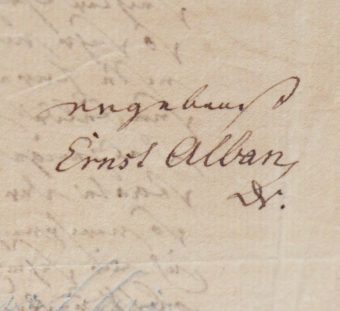 ergebenst
Ernst Alban,
Dr.